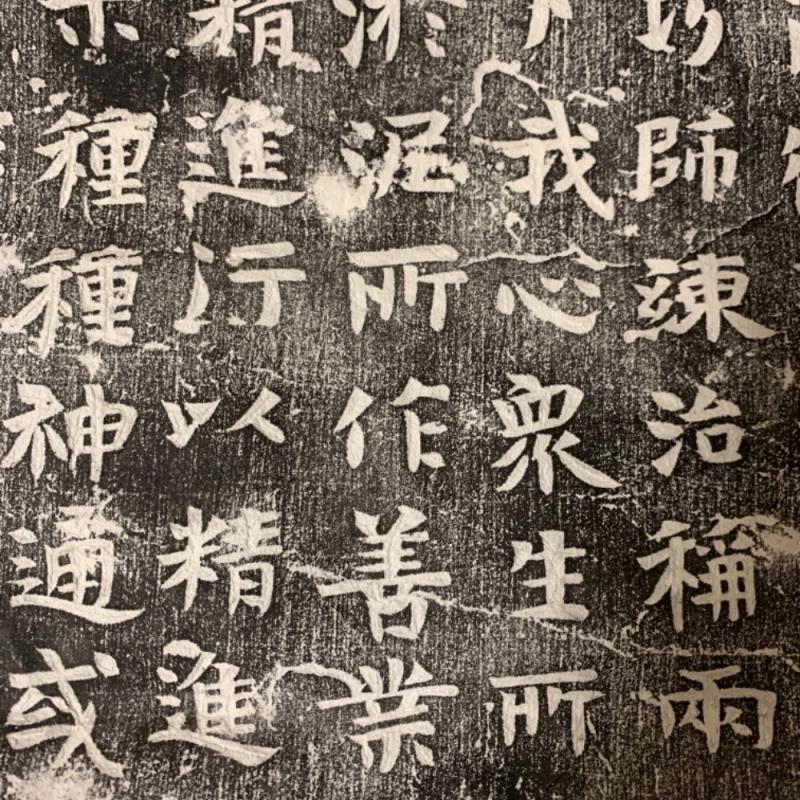 師練治稱兩
我心眾生所
淤泥所作善業
精進行以精進
種種神通或